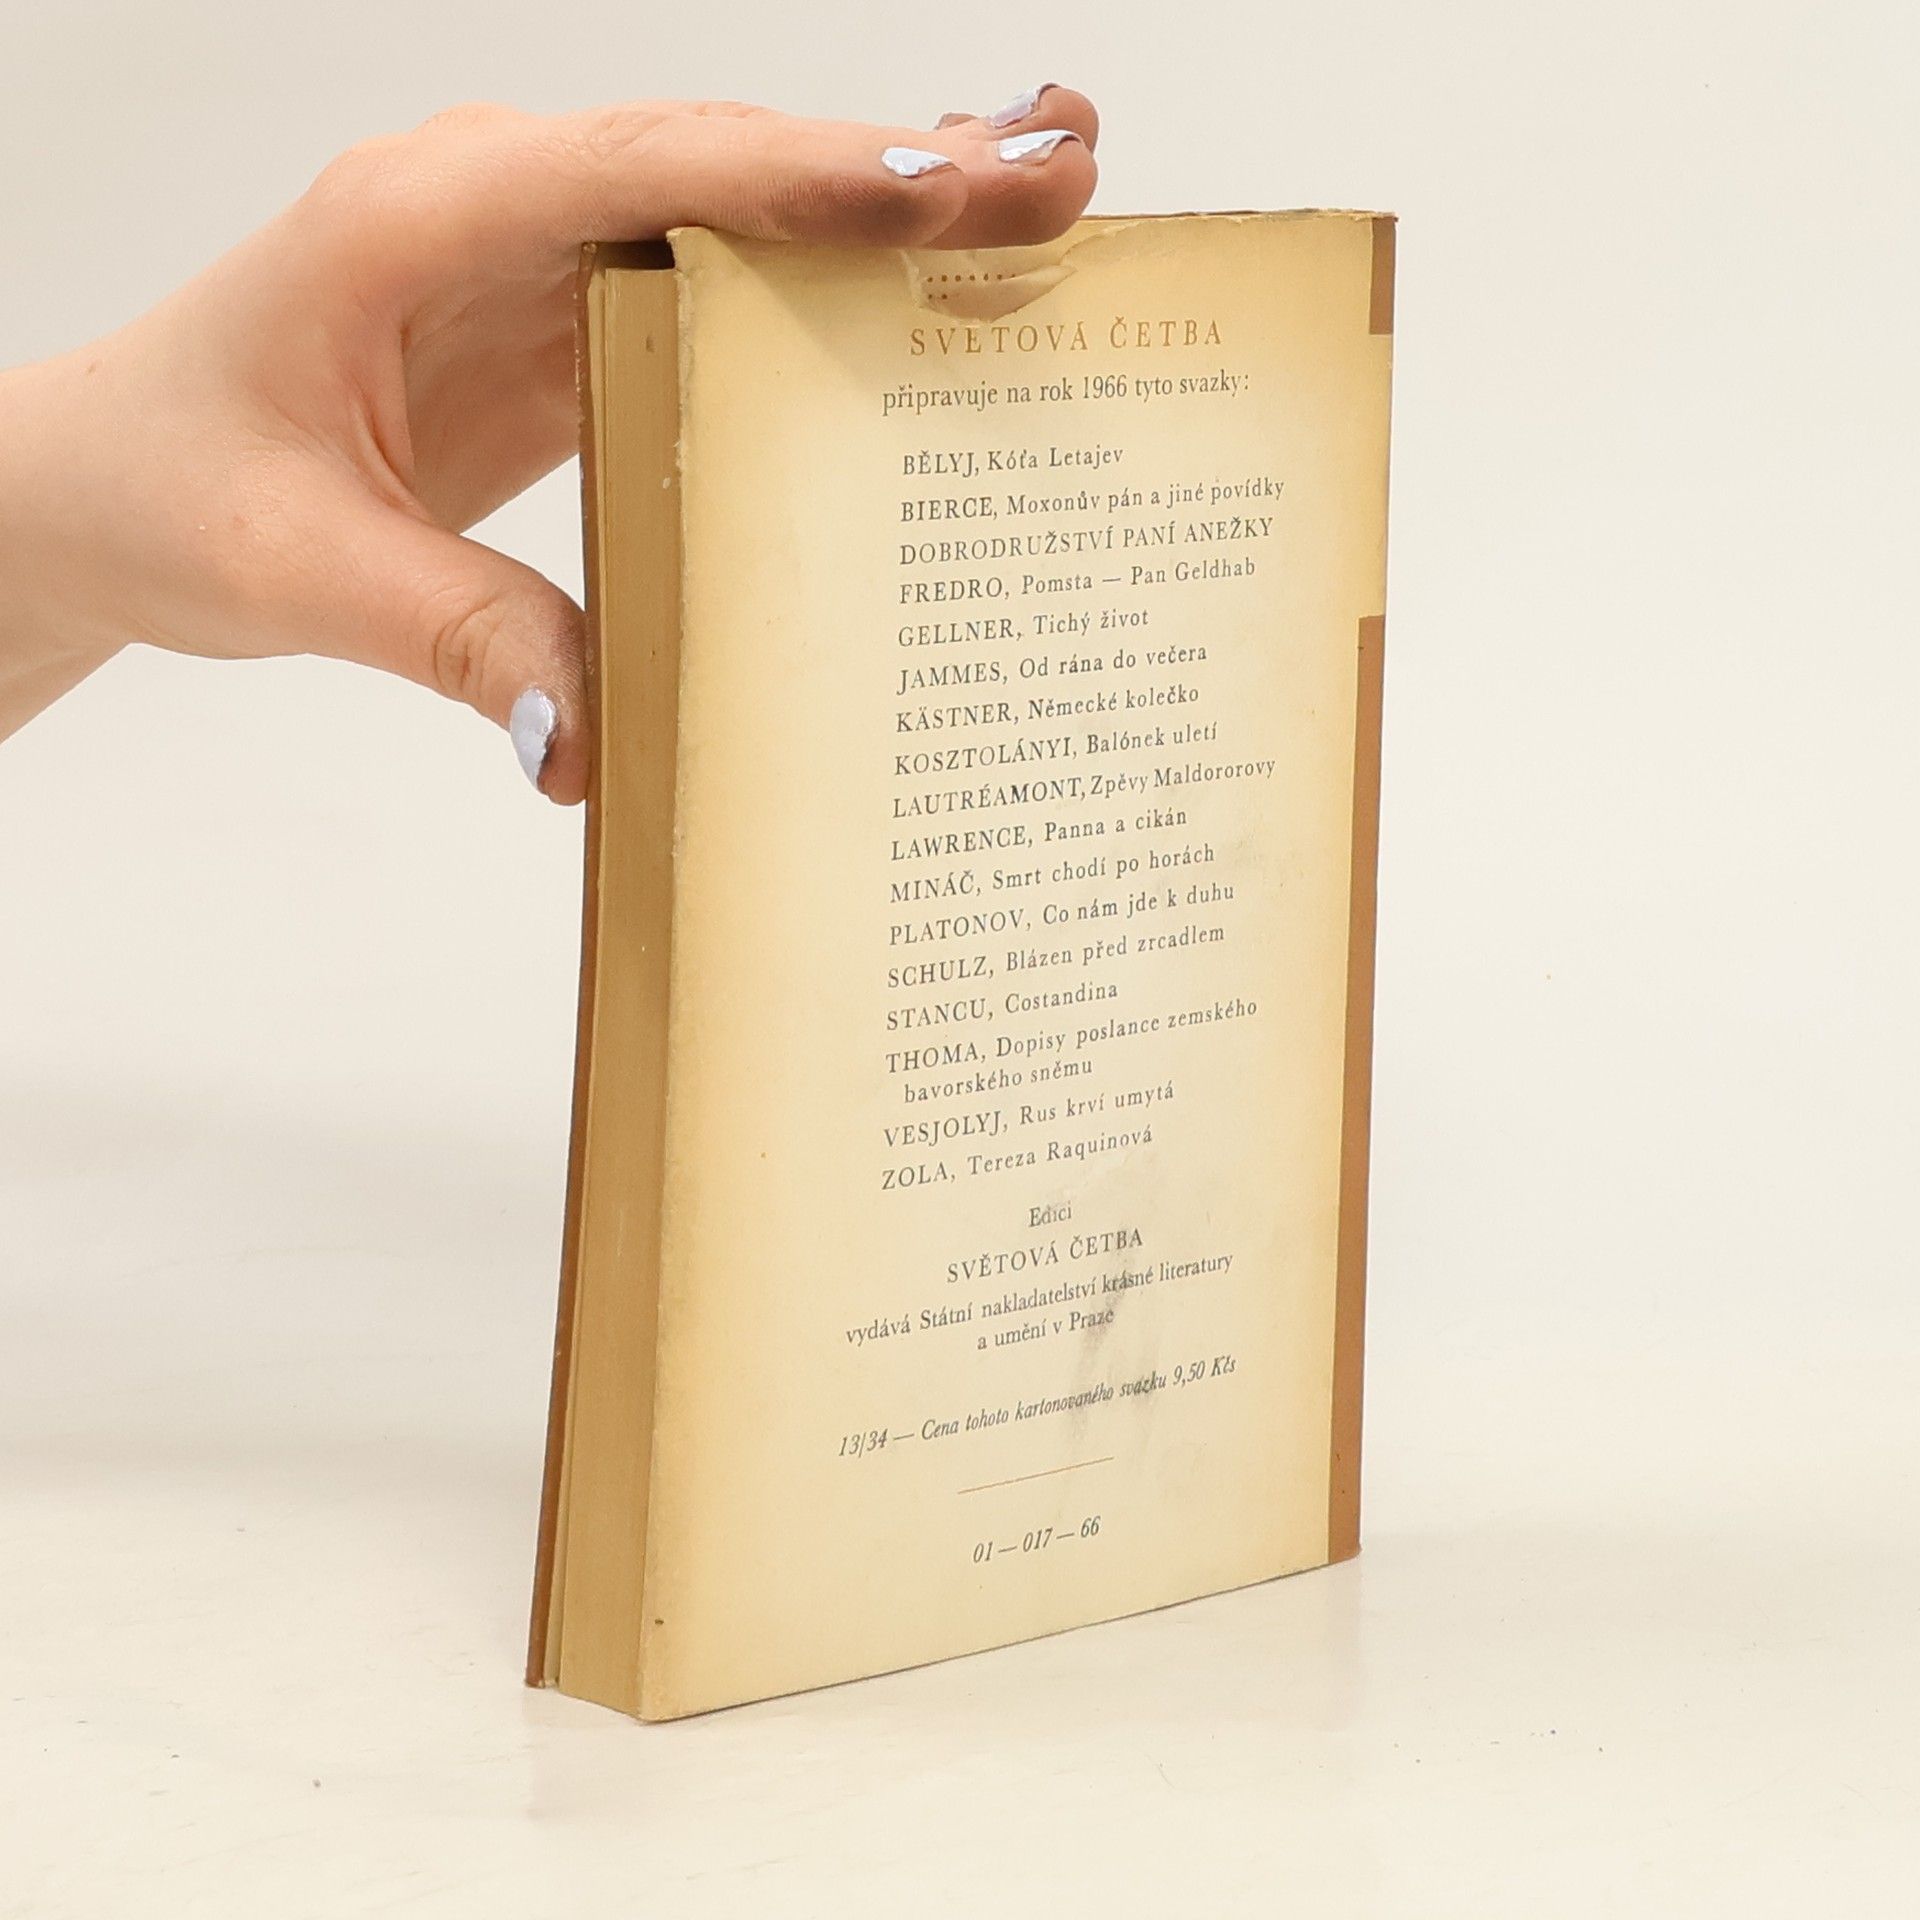 SVĚTOVÁ ČETBA
připravuje na rok 1966 tyto svazky:
BĚLYJ, Kóťa Letajev
BIERCE, Moxonův pán a jiné povídky
DOBRODRUŽSTVÍ PANÍ ANEŽKY
FREDRO, Pomsta — Pan Geldhab
GELLNER, Tichý život
JAMMES, Od rána do večera
KÄSTNER, Německé kolečko
KOSZTOLÁNYI, Balónek uletí
LAUTRÉAMONT, Zpěvy Maldororovy
LAWRENCE, Panna a cikán
MINÁČ, Smrt chodí po horách
PLATONOV, Co nám jde k duhu
SCHULZ, Blázen před zrcadlem
STANCU, Costandina
THOMA, Dopisy poslance zemského
bavorského sněmu
VESJOLYJ, Rus krví umytá
ZOLA, Tereza Raquinová
Edici
SVĚTOVÁ ČETBA
vydává Státní nakladatelství krásné literatury
a umění v Praze
13/34 — Cena tohoto kartonovaného svazku 9,50 Kčs
01 — 017 — 66